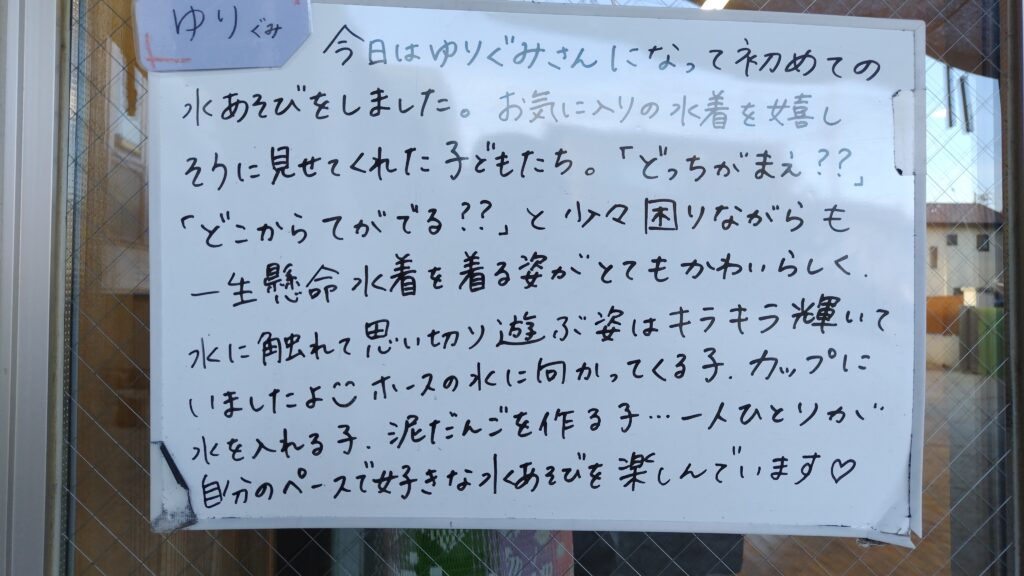 ゆりぐみ
今日はゆりぐみさんになって初めての
水あそびをしました。お気に入りの水着を嬉し
そうに見せてくれた子どもたち。「どっちがまえ??」
「どこからてがでる??」と少々困りながらも
一生懸命水着を着る姿がとてもかわいらしく、
水に触れて思い切り遊ぶ姿はキラキラ輝いて
いましたよ☺ホースの水に向かってくる子、カップに
水を入れる子、泥だんごを作る子…一人ひとりが
自分のペースで好きな水あそびを楽しんでいます♡